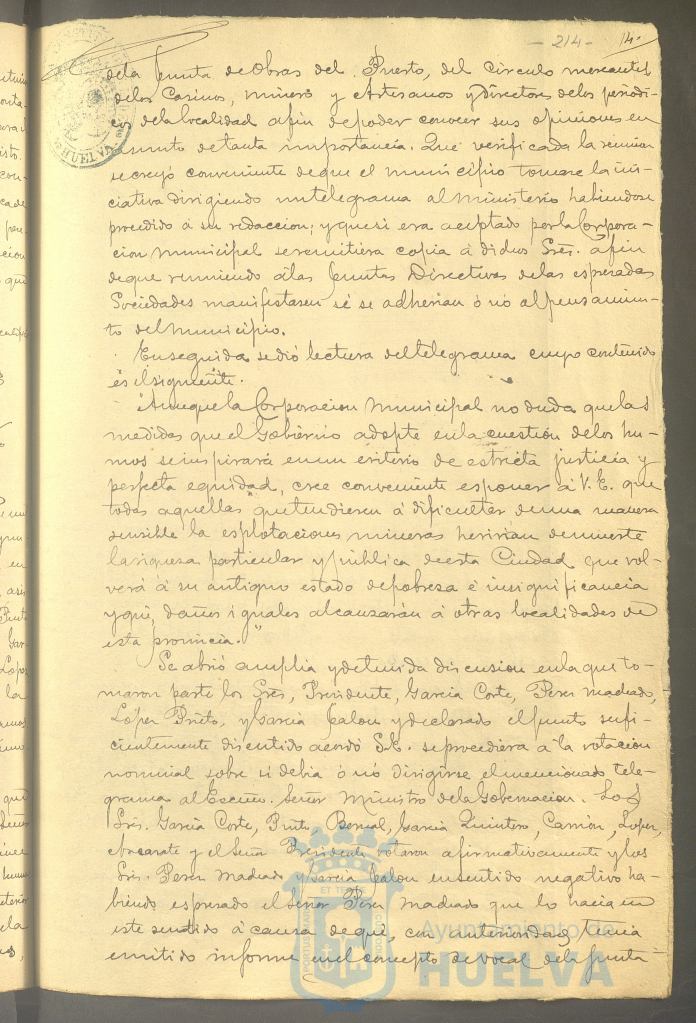 - 214 - 14.
dela Junta de Obras del Puerto, del Circulo mercantil
delos Casinos, minero y Artesanos y Directores delos periodi-
cos dela localidad afin depoder conocer sus opiniones en
asunto detanta importancia. Que verificada la reunion
secreyó conveniente deque el municipio tomase la ini-
ciativa dirigiendo untelegrama al Ministerio habiendose
procedido á su redaccion; y quesi era aceptado porla Corpora-
cion municipal seremitiera copia á dichos Sres. afin
deque reuniendo álas Juntas Directivas delas espresadas
Sociedades manifestasen si se adherian ó nó al pensamien-
to del municipio.
Enseguida sedió lectura deltelegrama cuyo contenido
es elsiguiente.
"Aunque la Corporacion Municipal no duda quelas
medidas que el Gobierno adopte enla cuestión delos hu-
mos seinspirará enun criterio de estricta justicia y
perfecta equidad, cree conveniente esponer á V. E. que
todas aquellas quetendiesen á dificultar deuna manera
sensible la esplotaciones mineras heririan demuerte
lariquesa particular y pública deesta Ciudad que vol-
verá á su antiguo estado depobresa é insignificancia
yque, daños iguales alcanzarán á otras localidades de
esta provincia."
Se abrió amplia ydetenida discusion enla que to-
maron parte los Sres, Presidente, Garcia Corte, Peres Machado,
López Prieto, y Garcia Jalon y declarado el punto sufi-
cientemente discutido acordó S.E. seprocediera á la votacion
nominal sobre si debia ó nó dirigirse elmencionado tele-
grama al Escmo. Señor Ministro dela Gobernacion. Los
Sres. Garcia Corte, Prieto, Garcia Quintero, Carrion, Lopez,
Azcarate y el Señor Presidente votaron afirmativamente y los
Sres. Peres Machado y Garcia Jalon ensentido negativo ha-
biendo espresado el señor Péres Machado que lo hacia en
este sentido á causa deque, con anterioridad, tenia
emitido informe enel concepto devocal dela Junta
HUELVA
Ayuntamiento de
HUELVA